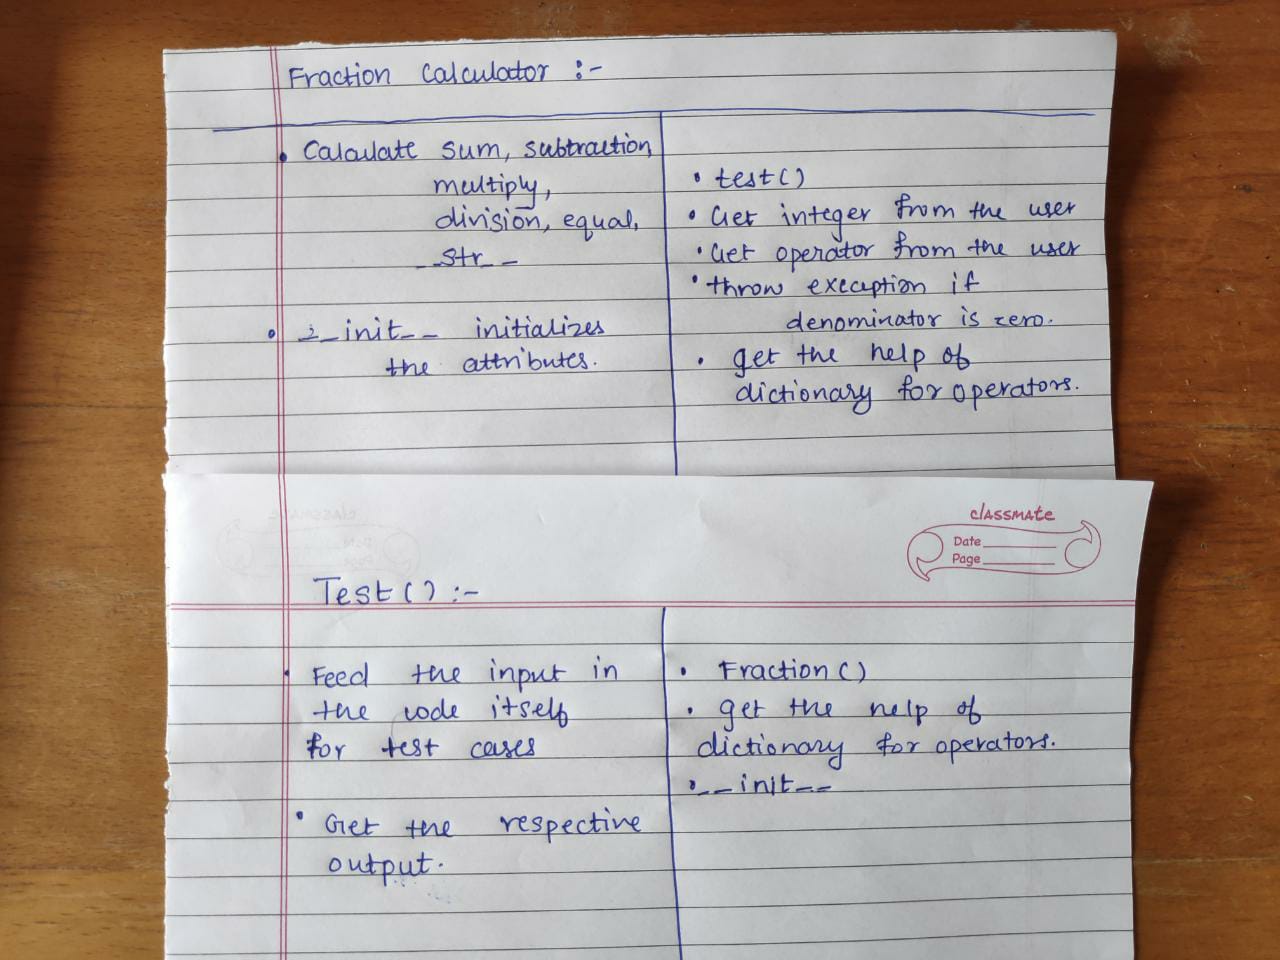 Fraction Calculator :-
• Calculate sum, subtraction,
multiply,
division, equal,
__str__
• __init__ initializes
the attributes.
• test()
• Get integer from the user
• Get operator from the user
• throw exception if
denominator is zero.
• get the help of
dictionary for operators.
classmate
Date
Page
Test() :-
• Feed the input in
the code itself
for test cases
• Get the respective
output.
• Fraction()
• get the help of
dictionary for operators.
• __init__